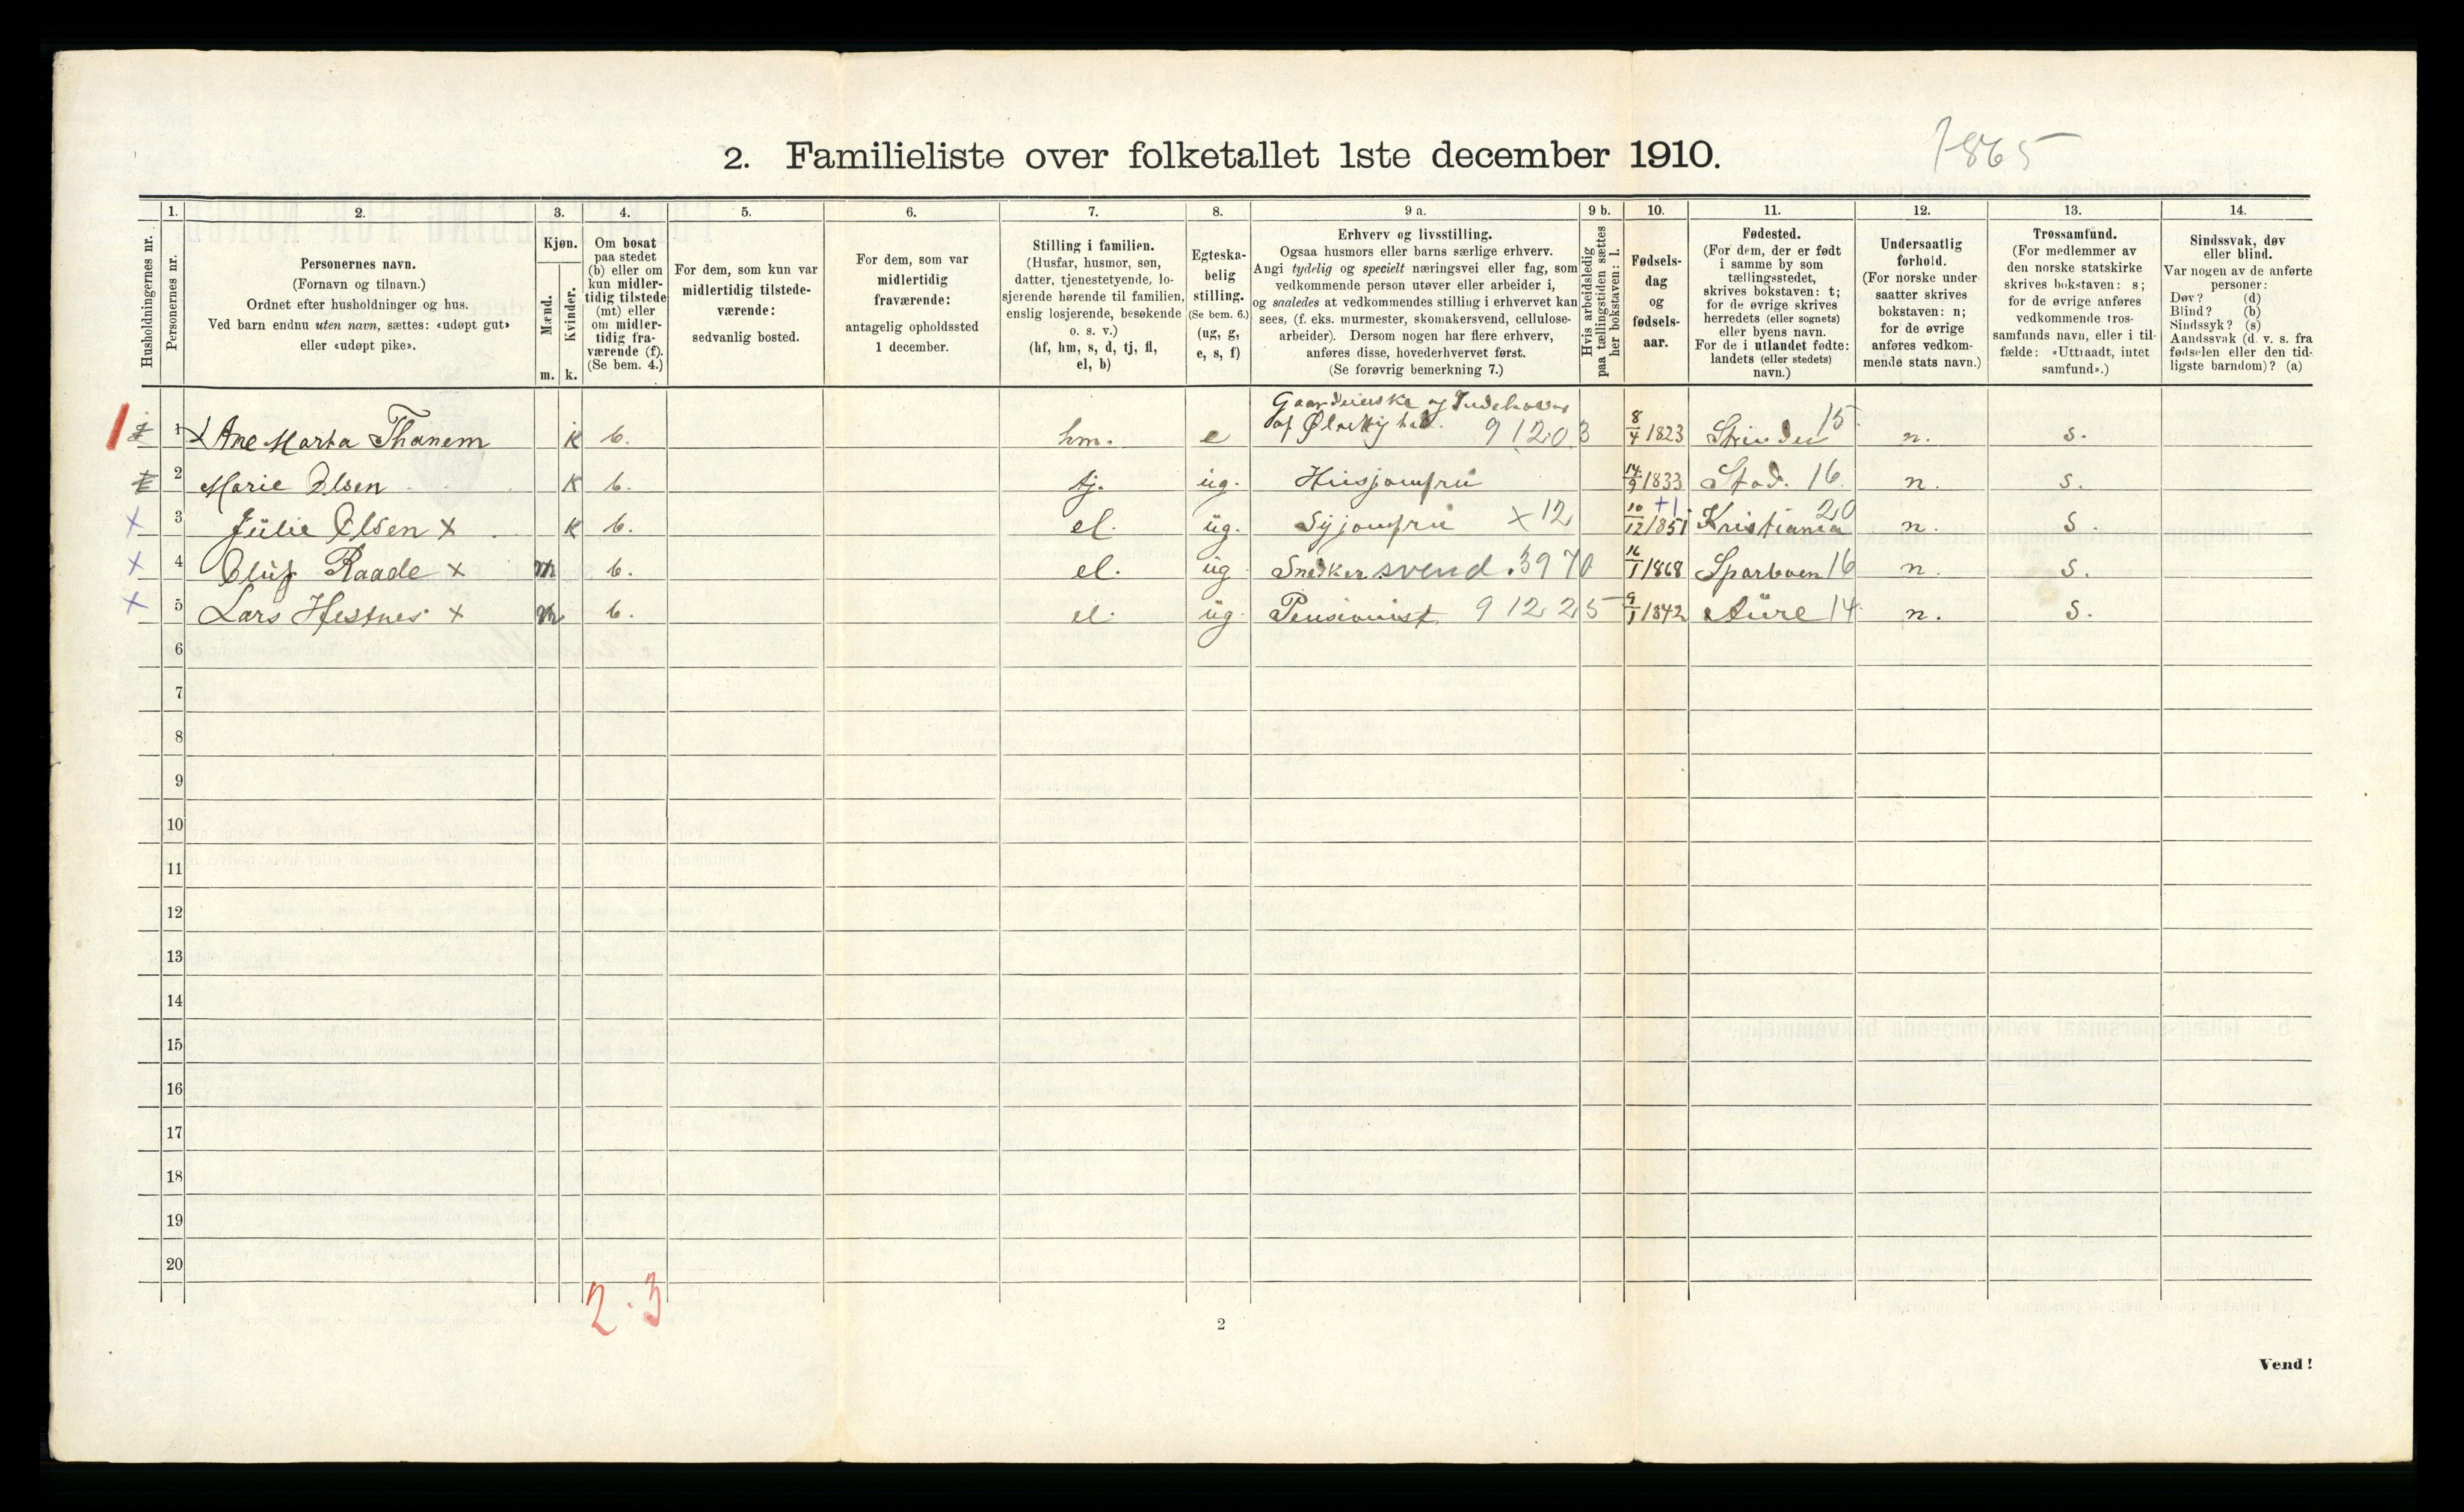 2. Familieliste over folketallet 1ste december 1910.
7865
1. 2. 3. 4. 5. 6. 7. 8. 9 a. 9 b. 10. 11. 12. 13. 14.
Husholdningernes nr.
Personernes nr.
Personernes navn.
(Fornavn og tilnavn.)
Ordnet efter husholdninger og hus.
Ved barn endnu uten navn, sættes: «udøpt gut»
eller «udøpt pike».
Kjøn.
Mænd.
Kvinder.
m. k.
Om bosat
paa stedet
(b) eller om
kun midler-
tidig tilstede
(mt) eller
om midler-
tidig fra-
værende (f).
(Se bem. 4.)
For dem, som kun var
midlertidig tilstede-
værende:
sedvanlig bosted.
For dem, som var
midlertidig
fraværende:
antagelig opholdssted
1 december.
Stilling i familien.
(Husfar, husmor, søn,
datter, tjenestetyende, lo-
sjerende hørende til familien,
enslig losjerende, besøkende
o. s. v.)
(hf, hm, s, d, tj, fl,
el, b)
Egteska-
belig
stilling.
(Se bem. 6.)
(ug, g,
e, s, f)
Erhverv og livsstilling.
Ogsaa husmors eller barns særlige erhverv.
Angi tydelig og specielt næringsvei eller fag, som
vedkommende person utøver eller arbeider i,
og saaledes at vedkommendes stilling i erhvervet kan
sees, (f. eks. murmester, skomakersvend, cellulose-
arbeider). Dersom nogen har flere erhverv,
anføres disse, hovederhvervet først.
(Se forøvrig bemerkning 7.)
Hvis arbeidsledig
paa tællingstiden sættes
her bokstaven: l.
Fødsels-
dag
og
fødsels-
aar.
Fødested.
(For dem, der er født
i samme by som
tællingsstedet,
skrives bokstaven: t;
for de øvrige skrives
herredets (eller sognets)
eller byens navn.
For de i utlandet fødte:
landets (eller stedets)
navn.)
Undersaatlig
forhold.
(For norske under-
saatter skrives
bokstaven: n;
for de øvrige
anføres vedkom-
mende stats navn.)
Trossamfund.
(For medlemmer av
den norske statskirke
skrives bokstaven: s;
for de øvrige anføres
vedkommende tros-
samfunds navn, eller i til-
fælde: «Uttraadt, intet
samfund».)
Sindssvak, døv
eller blind.
Var nogen av de anførte
personer:
Døv? (d)
Blind? (b)
Sindssyk? (s)
Aandssvak (d. v. s. fra
fødselen eller den tid-
ligste barndom)? (a)
1 Ane Marta Thanem k b. hm. e 9 12.03 8/4 1823 Strinden 15 n. s.
2 Marie Olsen k b. tj. ug. Husjomfru 14/9 1833 Stod. 16 n. s.
x 3 Julie Olsen x k b. el. ug. Syjomfru x 12 10/12 1851 +1 Kristiania 20 n. s.
x 4 Oluf Raade x m b. el. ug Snedker svend. 3970 16/1 1868 Sparbuen 16 n. s.
x 5 Lars Hestnes x m b. el. ug. Pensionist 9 12 25 9/1 1842 Aure 14 n. s.
6
7
8
9
10
11
12
13
14
15
16
17
18
19
20
2 . 3
2
Vend!